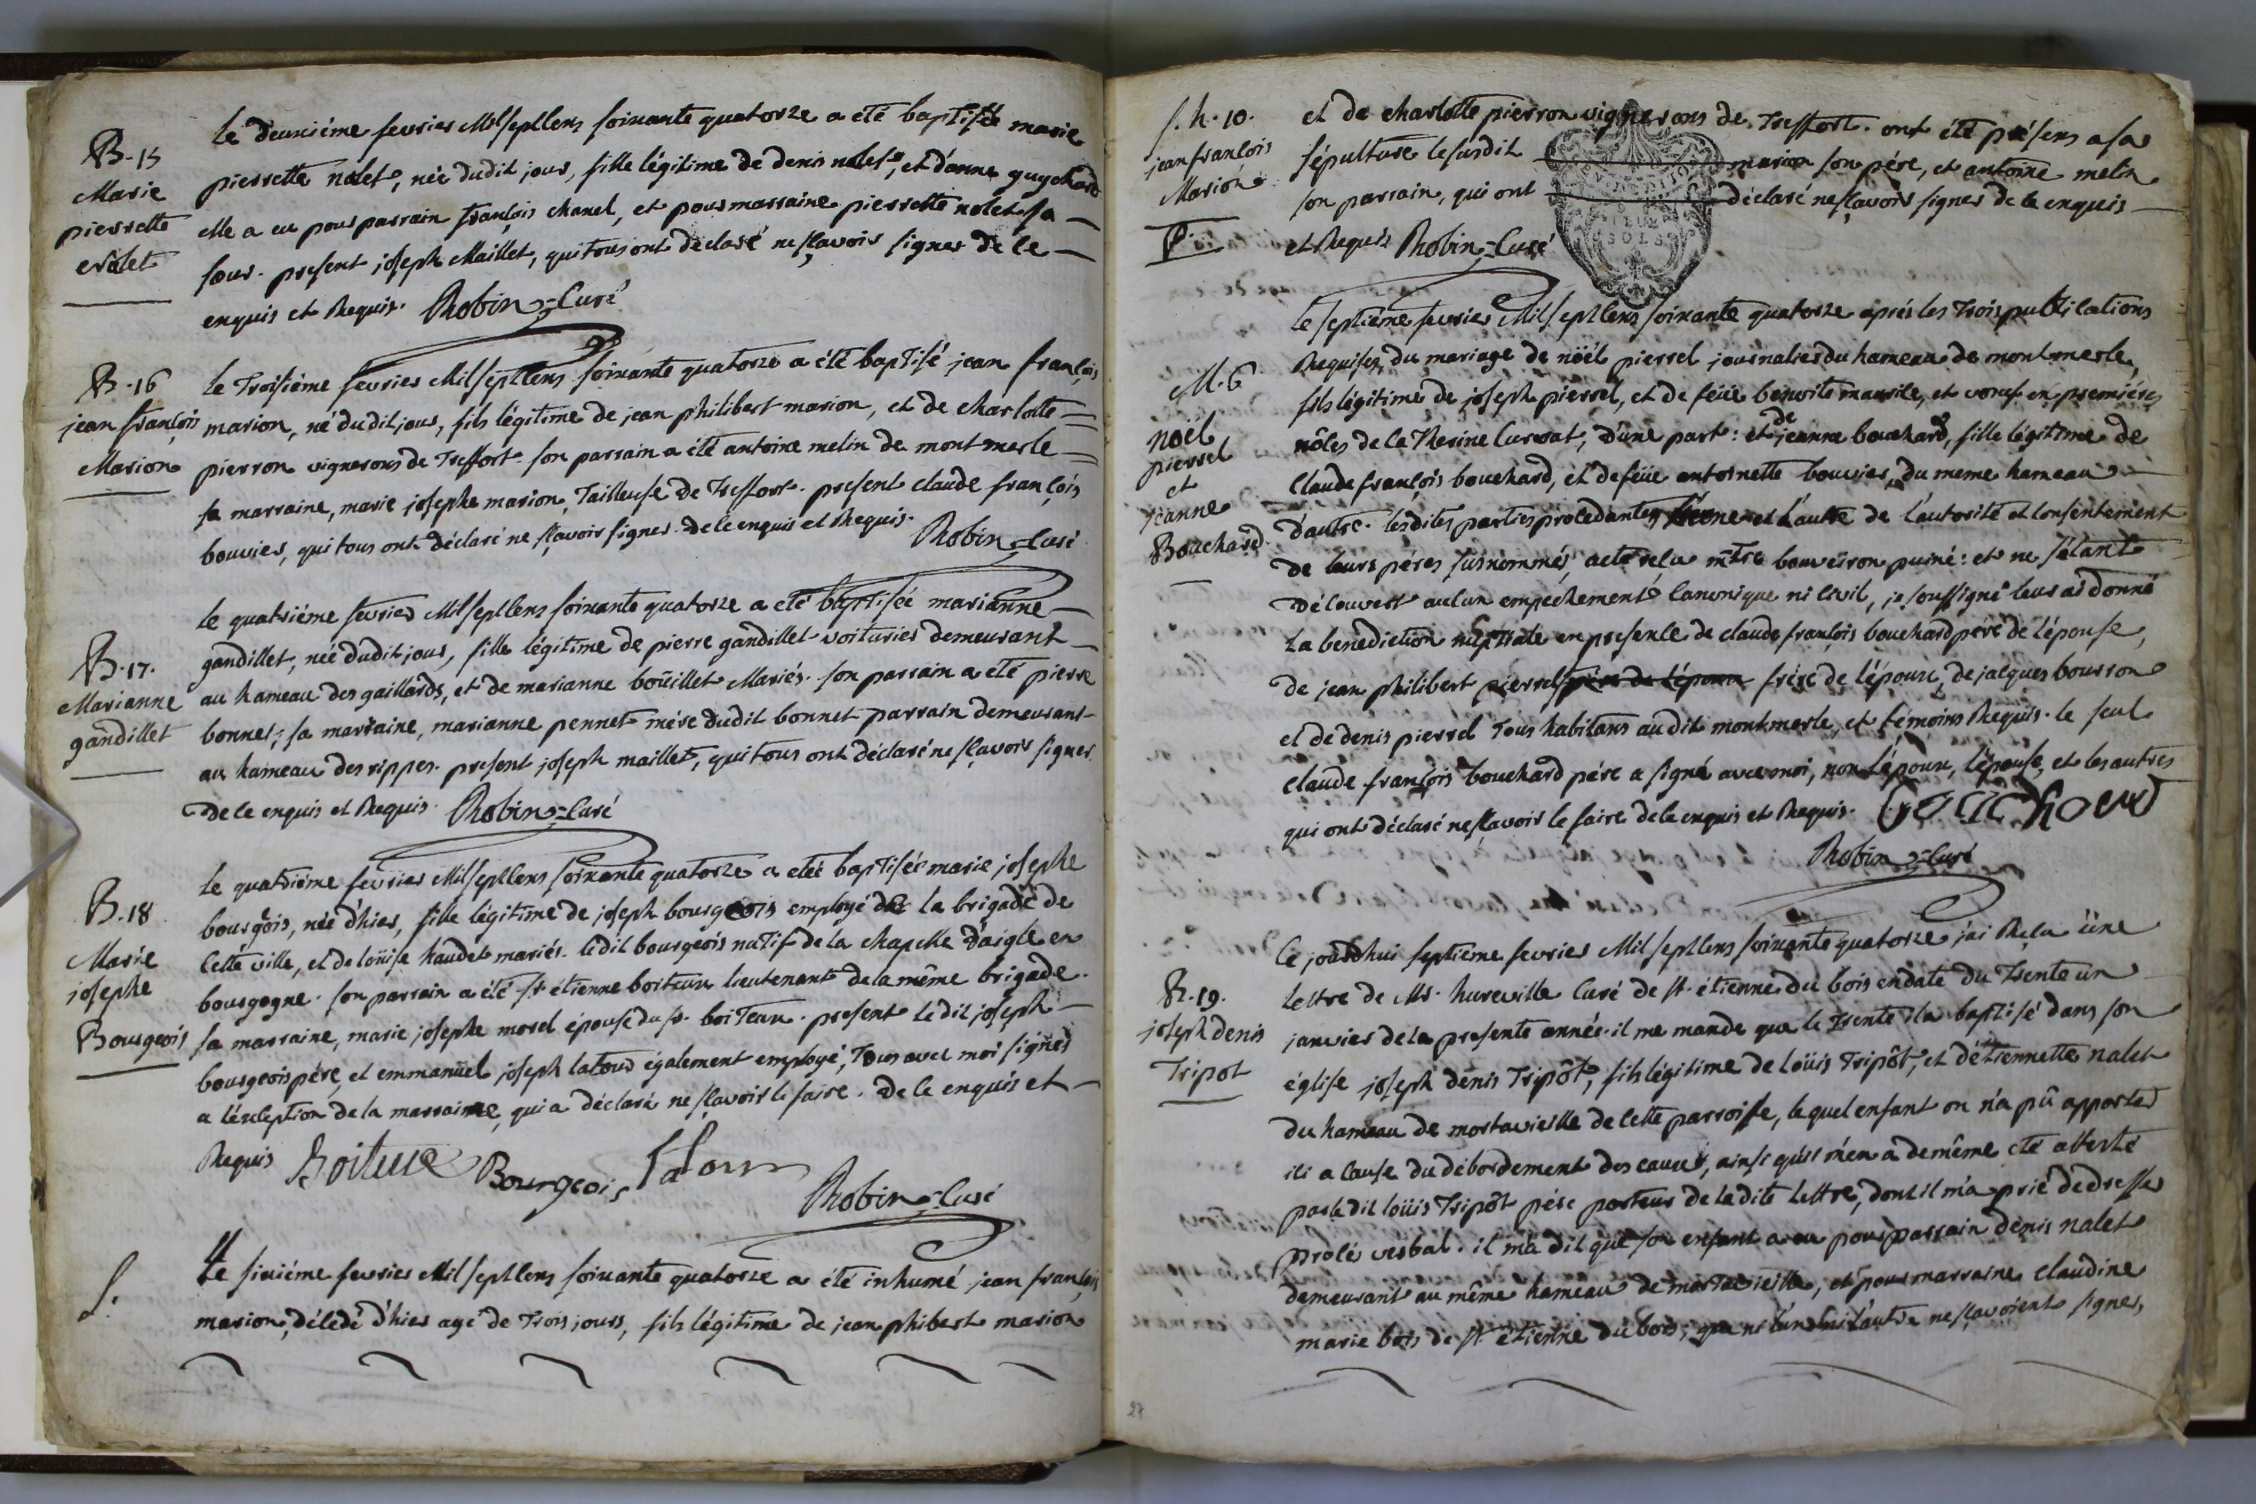 B. 15
Marie
pierrette
Nolet
Le deuxiéme fevrier Mil septcens soixante quatorze a été baptisée marie
pierrette nolet, née dudit jour, fille légitime de denis nolet, et d'anne guychard
elle a eu pour parrain françois chanel, et pour marraine pierrette nolet sa
sœur. present joseph Maillet, qui tous ont déclaré ne sçavoir signer de ce
enquis et Requis. Robin = Curé
B. 16
jean françois
Marion
Le Troisiéme fevrier Mil septcens soixante quatorze a été baptisé jean françois
marion, né dudit jour, fils légitime de jean philibert marion, et de charlotte
pierron vignerons de Treffort. son parrain a été antoine melin de montmerle
sa marraine, marie josephe marion, Tailleuse de Treffort. present claude françois
bouvier, qui tous ont déclaré ne sçavoir signer de ce enquis et Requis. Robin = Curé
B. 17.
Marianne
gandillet
Le quatriéme fevrier Mil septcens soixante quatorze a été baptisée marianne
gandillet, née dudit jour, fille légitime de pierre gandillet voiturier demeurant
au hameau des gaillards, et de marianne boüillet Mariés. son parrain a été pierre
bonnet; sa marraine, marianne pennet mére dudit bonnet parrain demeurant
au hameau des rippes. present joseph maillet, qui tous ont déclaré ne sçavoir signer
de ce enquis et Requis. Robin = Curé
B. 18
Marie
josephe
Bourgeois
Le quatriéme fevrier Mil septcens soixante quatorze a été baptisée marie josephe
bourgeois, née d'hier, fille légitime de joseph bourgeois employé de la brigade de
cette ville, et de loüise haudet mariés. ledit bourgeois natif de la chapelle d'aigle en
bourgogne. son parrain a été sr. étienne boiteux lieutenant de la même brigade.
sa marraine, marie josephe morel épouse du sr. boiteux. present ledit joseph
bourgeois pére, et emmanüel joseph latour également employé, Tous avec moi signés
a l'exception de la marraine, qui a déclaré ne sçavoir le faire. De ce enquis et
Requis Boiteux Bourgeois Latour
Robin = Curé
S.
Le sixiéme fevrier Mil septcens soixante quatorze a été inhumé jean françois
marion, décédé d'hier agé de Trois jours, fils légitime de jean phibert marion
S. h. 10.
jean françois
Marion
et de charlotte pierron vignerons de Treffort. ont été présens a sa
sépulture le susdit marion son pére, et antoine melin
son parrain, qui ont déclaré ne sçavoir signer de ce enquis
et Requis Robin = Curé
M. 6
noël
pierrel
et
jeanne
Bouchard
Le septiéme fevrier Mil septcens soixante quatorze aprés les Trois publications
Requises, du mariage de nöël pierrel journalier du hameau de montmerle,
fils légitime de joseph pierrel, et de feüe benoite et veuf en premiéres
nôces de catherine d'une part: et de jeanne bouchard, fille légitime de
Claude françois bouchard, et de feüe antoinette bouvier, du meme hameau
d'autre. lesdites parties procedantes l'une et l'autre de l'autorité et consentement
de leurs péres susnommés acte reçu mtre bouveiron puiné: et ne s'étant
découvert aucun empéchement canonique ni civil, je soussigné leur ai donné
La benediction nuptiale en presence de claude françois bouchard pére de l'épouse,
de jean philibert pierrel pére de l'époux frére de l'époux, de jacques bourron
et de denis pierrel Tous habitans audit montmerle, et témoins Requis. le seul
claude françois bouchard pére a signé avec moi, non l'époux, l'épouse, et les autres
qui ont déclaré ne sçavoir le faire de ce enquis et Requis. bouchard
Robin = Curé
B. 19.
joseph denis
Tripot
Ce jourdhui septiéme fevrier Mil septcens soixante quatorze j'ai Reçu üne
Lettre de Mr. hureville Curé de st. étienne du bois en date du Trente un
janvier de la presente année. il me mande que le Trente il a baptisé dans son
église joseph denis Tripôt, fils légitime de loüis Tripôt, et d'étiennette nalet
du hameau de mortavieille de cette parroisse, lequel enfant on n'a pû apporter
ici a cause du débordement des eaux, ainsi qu'il m'en a de même été attesté
par ledit loüis Tripôt pére porteur de la dite lettre, dont il m'a prié de dresser
procés verbal. il m'a dit que son enfant a eu pour parrain denis nalet
demeurant au même hameau de mortavieille, et pour marraine claudine
marie bois de st étienne du bois, que ni l'un ni l'autre ne sçavoient signer,
27